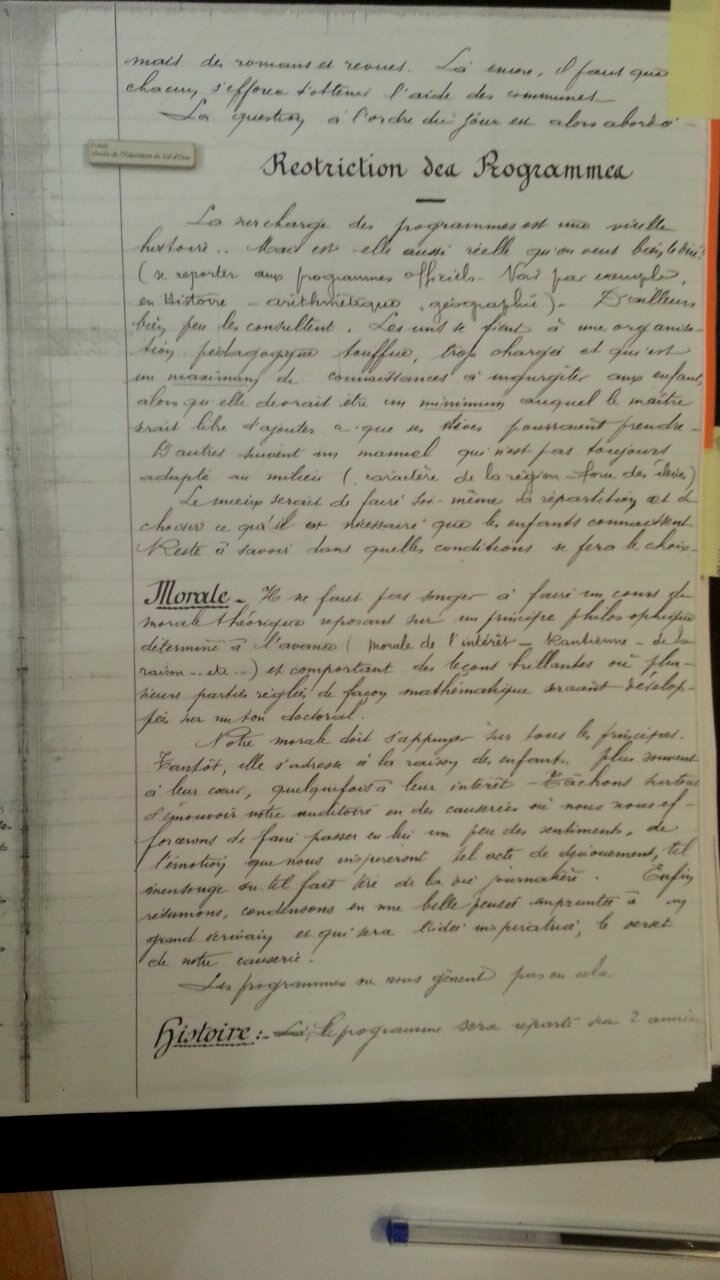 mais des romans et revues. Là encore, il faut que
chacun s'efforce d'obtenir l'aide des communes
La question à l'ordre du jour est alors abordée
Fonds
Musée de l'Education du Val d'Oise
Restriction des Programmes
La surcharge des programmes est une vieille
histoire.. Mais est-elle aussi réelle qu'on veut bien le dire?
(se reporter aux programmes officiels. Voir par exemple,
en Histoire - arithmétique, géographie). D'ailleurs
bien peu les consultent. Les uns se fient à une organisa-
tion pédagogique touffue, trop chargée et qui est
un maximum de connaissances à ingurgiter aux enfants,
alors qu'elle devrait être un minimum auquel le maître
serait libre d'ajouter ce que ses élèves pourraient prendre.
D'autres suivent un manuel qui n'est pas toujours
adapté au milieu (caractère de la région - force des élèves)
Le mieux serait de faire soi-même sa répartition et de
choisir ce qu'il est nécessaire que les enfants connaissent
Reste à savoir dans quelles conditions se fera le choix.
Morale - Il ne faut pas songer à faire un cours de
morale théorique reposant sur un principe philosophique
déterminé à l'avance (morale de l'intérêt - Kantienne - de la
raison - etc...) et comportant des leçons brillantes où plu-
sieurs parties réglées de façon mathématique seraient dévelop-
pées sur un ton doctoral.
Notre morale doit s'appuyer sur tous les principes.
Tantôt, elle s'adresse à la raison des enfants, plus souvent
à leur cœur, quelquefois à leur intérêt - Tâchons surtout
d'émouvoir notre auditoire en des causeries où nous nous ef-
forcerons de faire passer en lui un peu des sentiments, de
l'émotion que nous inspireront tel acte de dévouement, tel
mensonge ou tel fait tiré de la vie journalière. Enfin
résumons, condensons en une belle pensée empruntée à un
grand écrivain et qui sera l'idée inspiratrice, le
de notre causerie.
Les programmes ne nous gênent pas en cela
Histoire :- Le programme sera réparti sur 2 années